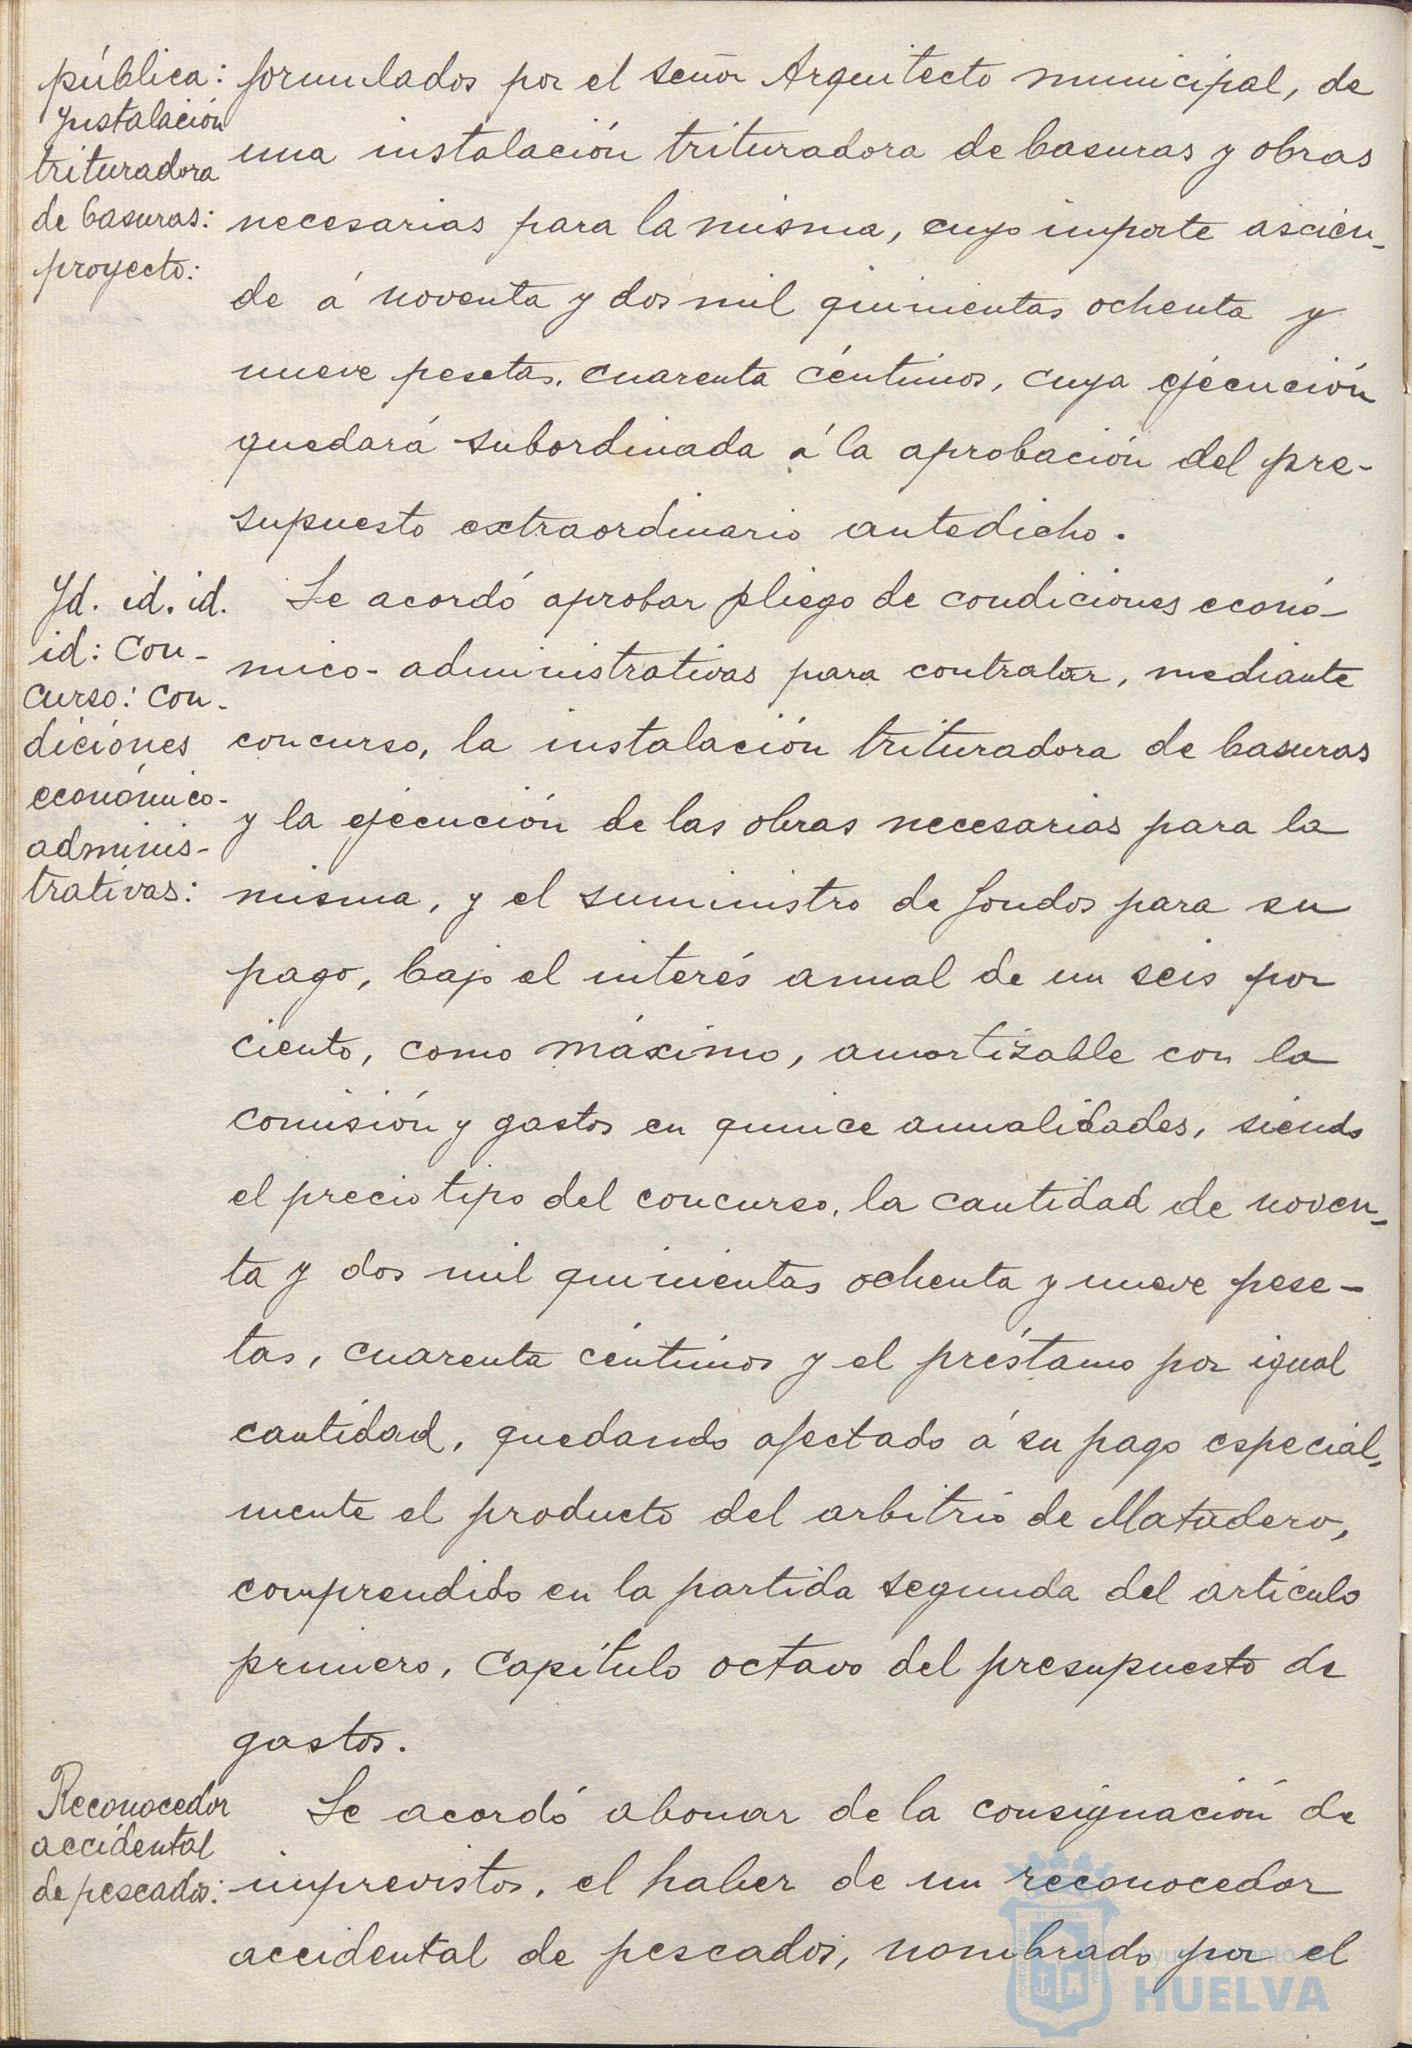 pública:
Ynstalación
trituradora
de basuras:
proyecto:
formulados por el señor Arquitecto municipal, de
una instalación trituradora de basuras y obras
necesarias para la misma, cuyo importe ascien-
de á noventa y dos mil quinientas ochenta y
nueve pesetas, cuarenta céntimos, cuya ejecución
quedará subordinada á la aprobación del pre-
supuesto extraordinario antedicho.
Yd. id. id.
id: Con-
curso: con-
diciones
económico-
adminis-
trativas:
Se acordó aprobar pliego de condiciones econó-
mico-administrativas para contratar, mediante
concurso, la instalación trituradora de basuras
y la ejecución de las obras necesarias para la
misma, y el suministro de fondos para su
pago, bajo el interés anual de un seis por
ciento, como máximo, amortizable con la
comisión y gastos en quince anualidades, siendo
el precio tipo del concurso, la cantidad de noven-
ta y dos mil quinientas ochenta y nueve pese-
tas, cuarenta céntimos y el préstamo por igual
cantidad, quedando afectado á su pago especial-
mente el producto del arbitrio de Matadero,
comprendido en la partida segunda del artículo
primero, Capítulo octavo del presupuesto de
gastos.
Reconocedor
accidental
de pescados:
Se acordó abonar de la consignación de
imprevistos, el haber de un reconocedor
accidental de pescados, nombrado por el
Ayuntamiento de
HUELVA